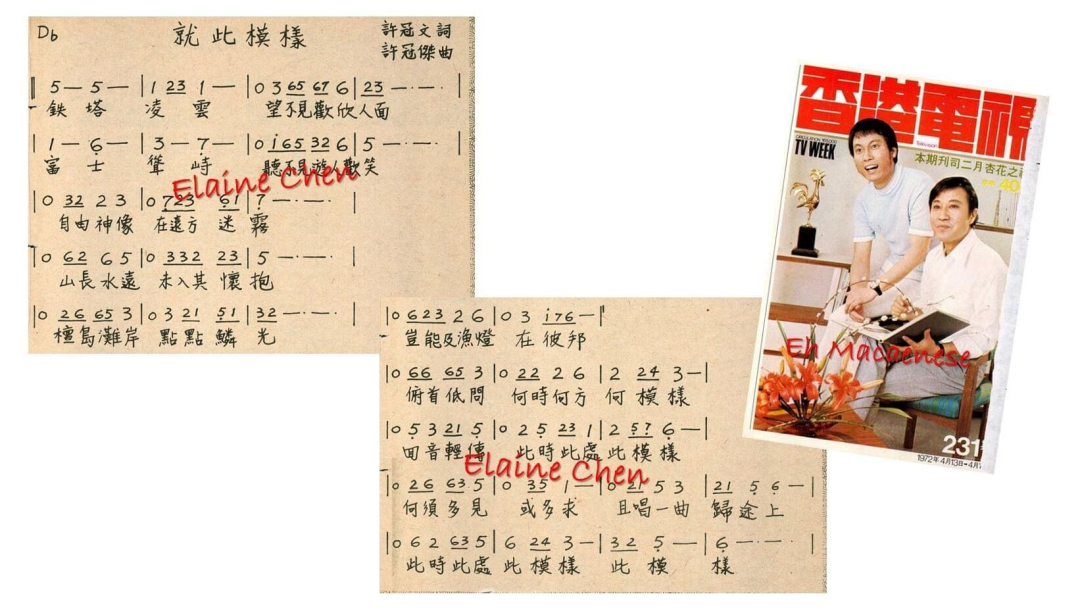 Db
就此模樣
許冠文詞
許冠傑曲
‖ 5 — 5 — | 1 23 1 — | 0 3 65 67 6 | 23 — · — · |
鉄塔 凌雲 望不見歡欣人面
1 — 6 — | 3 — 7 — | 0 i 65 32 6 | 5 — · — · |
富士 聳峙 聽不見遊人歡笑
Elaine Chen
| 0 32 2 3 | 0 7 23 61 | 7 — · — · |
自由神像 在遠方 迷霧
| 0 62 6 5 | 0 332 23 | 5 — · — · |
山長水遠 未入其懷抱
| 0 26 65 3 | 0 3 21 51 | 32 — · — · |
檀島灘岸 點點鱗光
| 0 623 2 6 | 0 3 i76 — ‖
豈能及漁燈 在彼邦
| 0 66 65 3 | 0 22 2 6 | 2 24 3 — |
俯首低問 何時何方 何模樣
| 0 5 3 21 5 | 0 2 5 23 1 | 2 57 6 — |
回音輕傳 此時此處此模樣
Elaine Chen
| 0 26 63 5 | 0 35 1 — | 0 21 5 3 | 21 5 6 — |
何須多見 或多求 且唱一曲 歸途上
| 0 6 2 63 5 | 6 24 3 — | 32 5 — | 6 — · — · |
此時此處 此模樣 此模樣
香港電視
TV WEEK
本期刊司二月杏花之
40
Eh Macaenese
231
1972年4月13日-4月